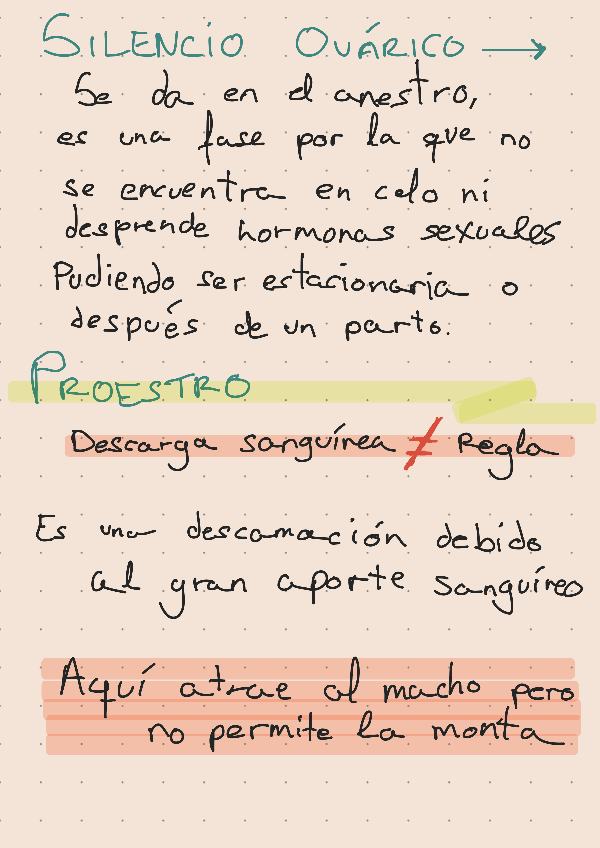 SILENCIO OVÁRICO →
Se da en el anestro,
es una fase por la que no
se encuentra en celo ni
desprende hormonas sexuales
Pudiendo ser estacionaria o
después de un parto.
PROESTRO
Descarga sanguínea ≠ Regla
Es una descamación debido
al gran aporte sanguíneo
Aquí atrae al macho pero
no permite la monta